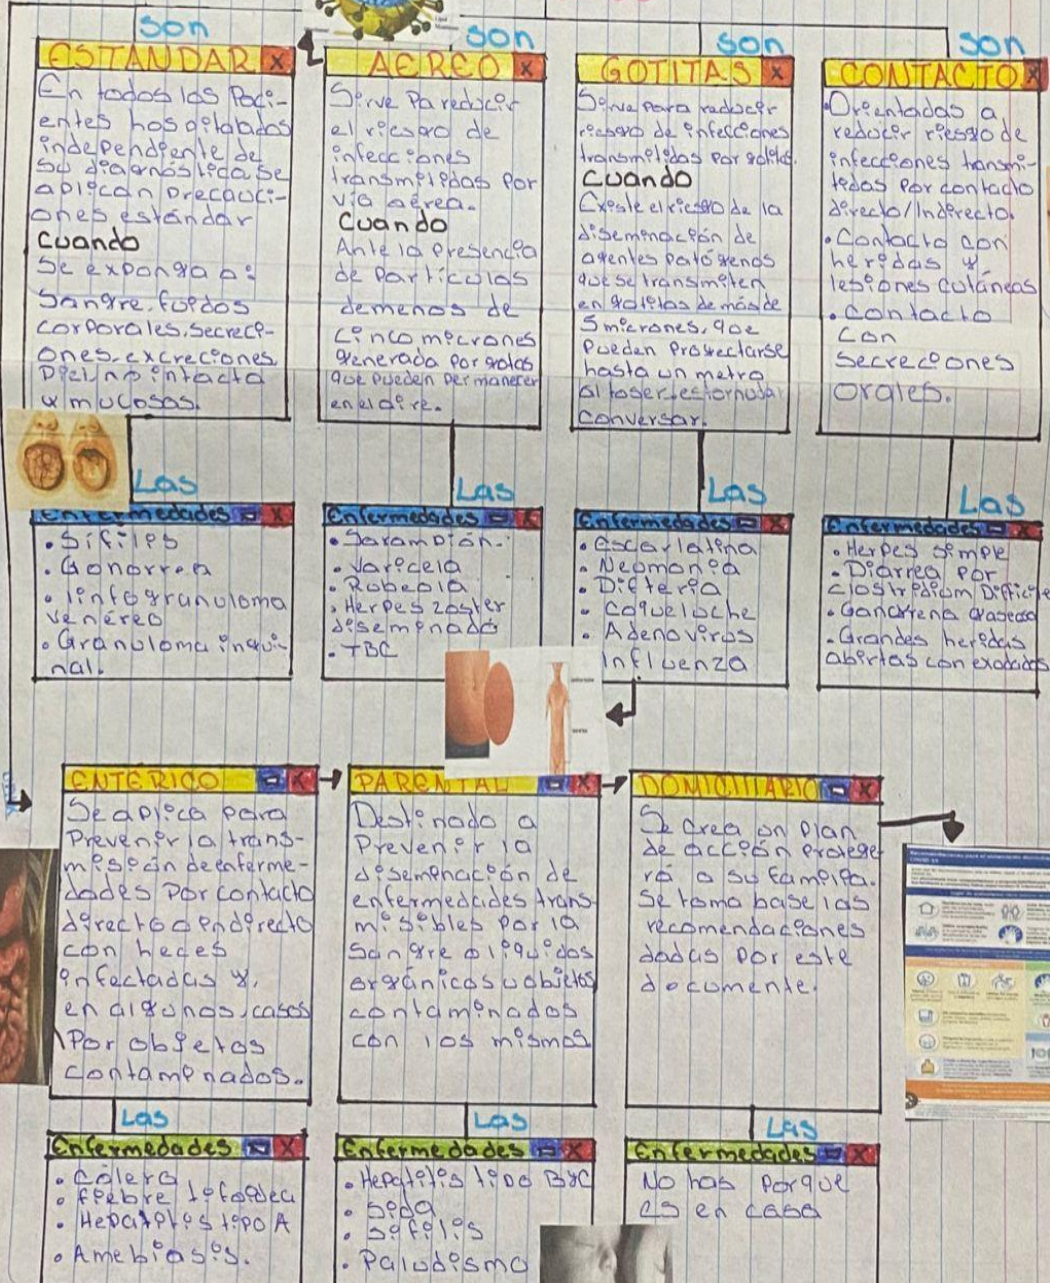 son
ESTANDAR X
En todos los Paci-
entes hospitalados
independiente de
su diagnóstico se
aplican precauci-
ones estándar
Cuando
Se exponga a:
Sangre, fluidos
corporales, secreci-
ones, excreciones
Piel no intacta
y mucosas.
Las
Enfermedades X
• Sífiles
• Gonorrea
• linfogranuloma
venéreo
• Granuloma ingui-
nal.
son
AEREO X
Sirve Pa reducir
el riesgo de
infecciones
transmitidas por
vía aérea.
Cuando
Ante la presencia
de Partículas
demenos de
cinco micrones
generada por gotas
que pueden permanecer
en el aire.
Las
Enfermedades X
• Sarampión.
• Varicela
• Rubeola
• Herpes zoster
diseminado
• TBC
son
GOTITAS X
Sirve para reducir
riesgo de infecciones
transmitidas por gotitas.
Cuando
Existe el riesgo de la
diseminación de
agentes patógenos
que se transmiten
en gotitas de más de
5 micrones, que
pueden proyectarse
hasta un metro
al toser, estornudar
conversar.
Las
Enfermedades X
• Escarlatina
• Neomonia
• Difteria
• Coqueluche
• Adenovirus
Influenza
son
CONTACTO X
• Orientadas a
reducir riesgo de
infecciones transmi-
tidas por contacto
directo/Indirecto.
• Contacto con
heridas y
lesiones cutáneas
• Contacto
con
secreciones
orales.
Las
Enfermedades X
• Herpes simple
• Diarrea por
clostredium Difficile
• Gancrena gaseosa
• Grandes heridas
abiertas con exodados
ENTÉRICO X
Se aplica para
Prevenir la trans-
misión de enferme-
dades por contacto
directo o indirecto
con heces
infectadas y,
en algunos, casos
Por objetos
contaminados.
Las
Enfermedades X
• Cólera
• fiebre tifoidea
• Hepatites tipo A
• Amebiasis.
PARENTAL X
Destinado a
Prevenir la
diseminación de
enfermedades trans-
misibles por la
Sangre o liquidos
orgánicos u objetos
contaminados
con los mismos
Las
Enfermedades X
• Hepatitis tipo B y C
• Sida
• Sifilis
• Paludismo
DOMICILIARIO X
Se crea un plan
de acción protege-
rá a su familia.
Se tomo base las
recomendaciones
dadas por este
documente.
Las
Enfermedades X
No has porque
es en casa